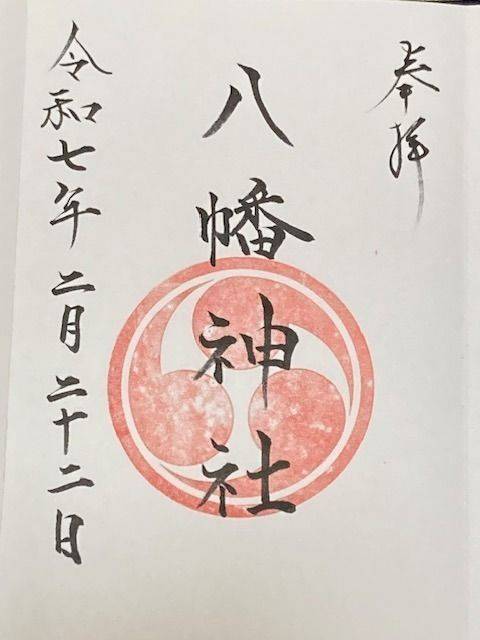 奉拝
八幡神社
令和七年二月二十二日